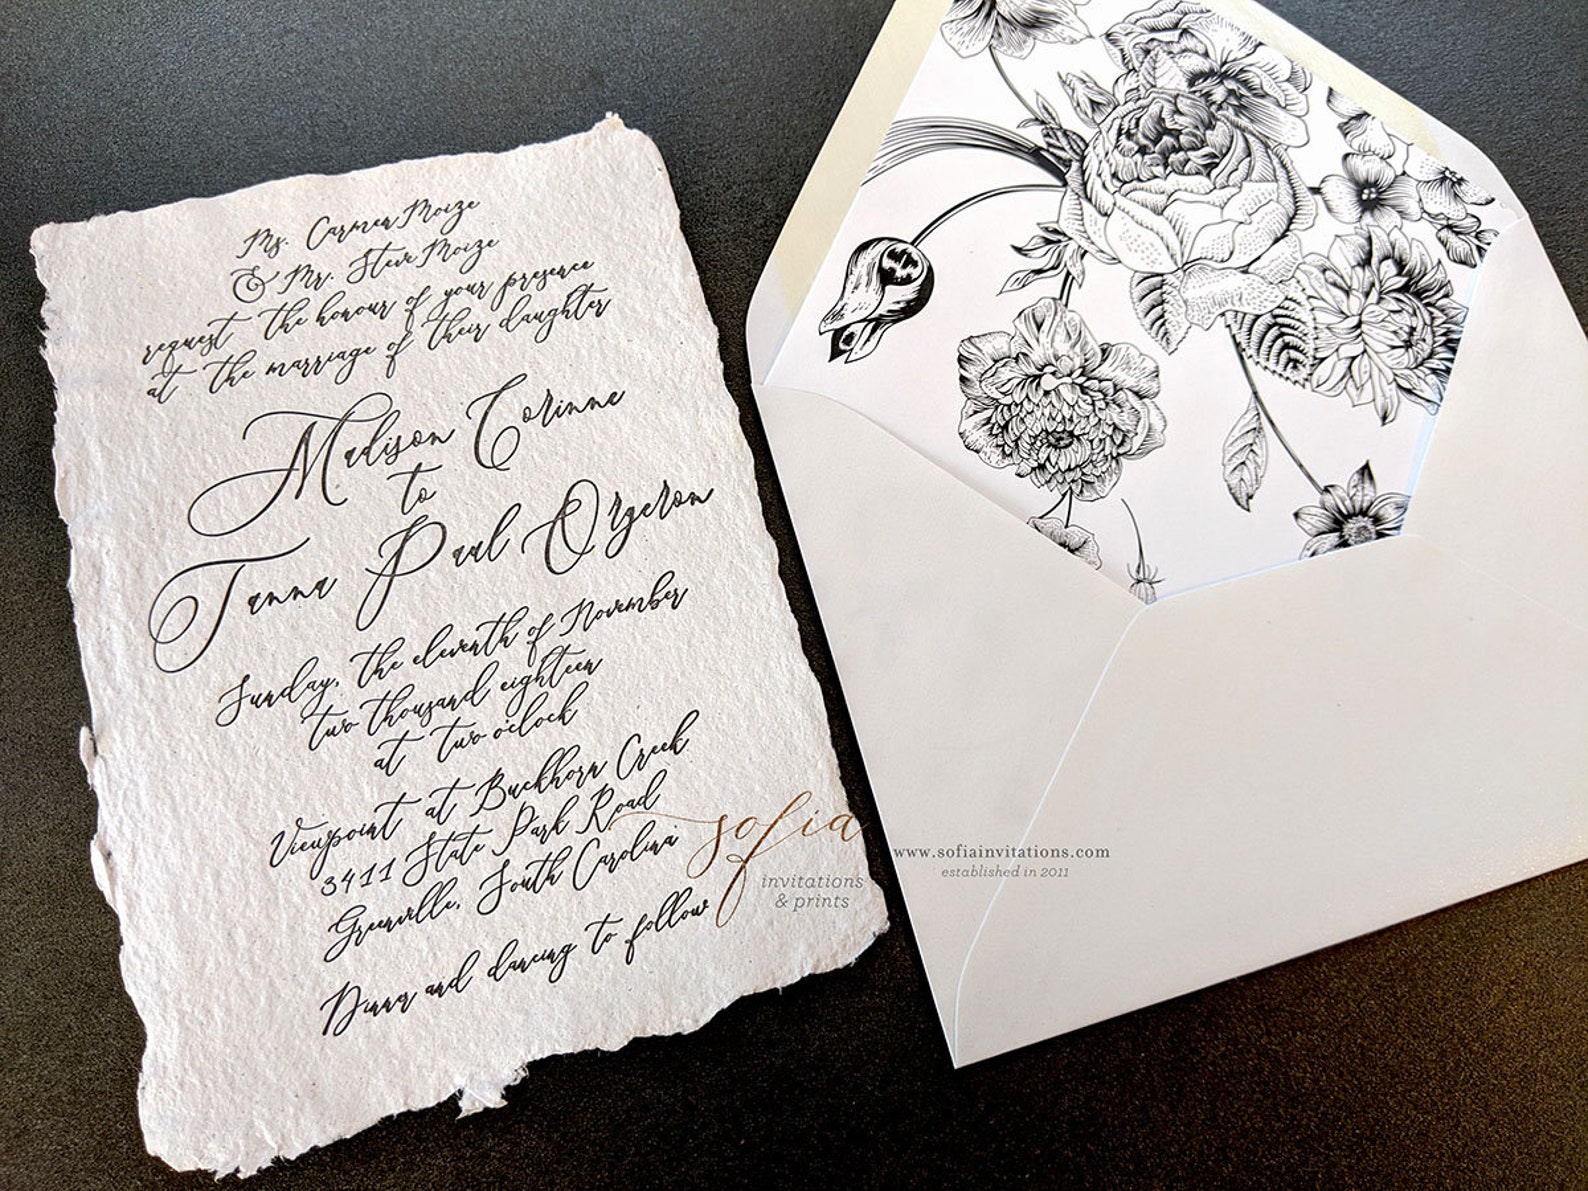 Ms. Carmen Moize
& Mr. Steve Moize
request the honour of your presence
at the marriage of their daughter
Madison Corinne
to
Tanna Paul Orgeron
Sunday, the eleventh of November
two thousand eighteen
at two o'clock
Viewpoint at Buckhorn Creek
3411 State Park Road
Greenville, South Carolina
Dinner and dancing to follow
sofia
invitations
& prints
www.sofiainvitations.com
established in 2011